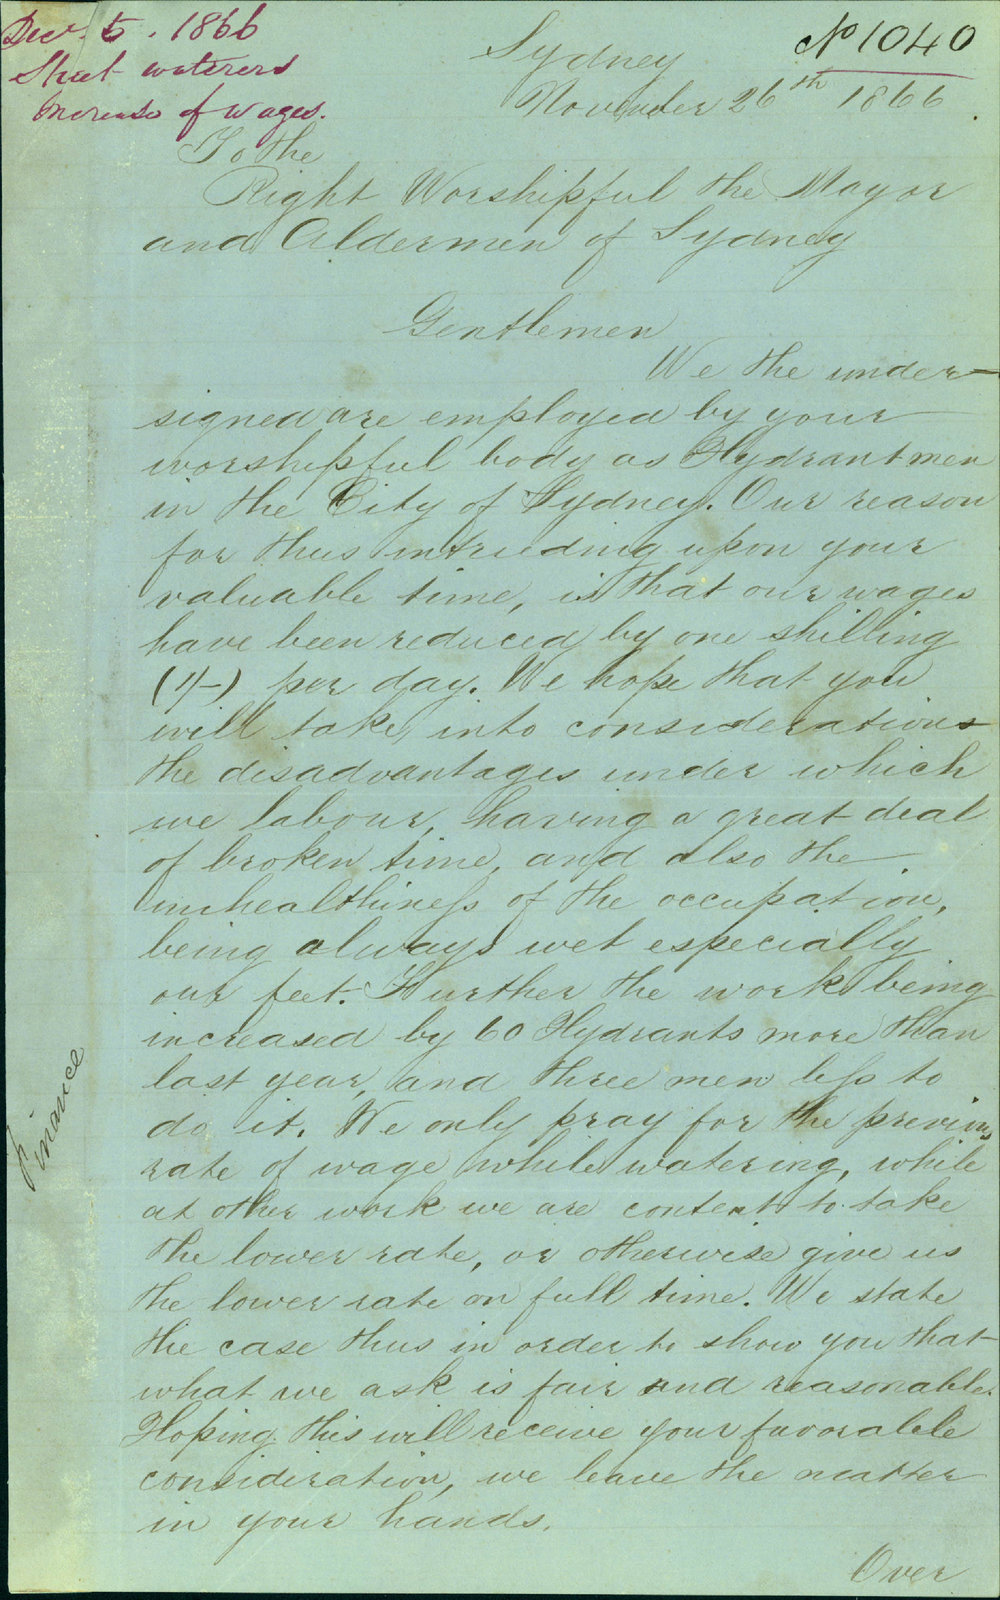 Decr. 5. 1866
Street waterers
Increase of wages.
No 1040
Sydney
November 26th 1866
To the
Right Worshipful the Mayor
and Aldermen of Sydney
Gentlemen
We the under-
signed are employed by your
worshipful body as Hydrantmen
in the City of Sydney. Our reason
for thus intruding upon your
valuable time, is that our wages
have been reduced by one shilling
(1/-) per day. We hope that you
will take into considerations
the disadvantages under which
we labour, having a great deal
of broken time, and also the
unhealthiness of the occupation,
being always wet especially
our feet. Further the work being
increased by 60 Hydrants more than
last year, and three men less to
do it. We only pray for the previous
rate of wage while watering, while
at other work we are content to take
the lower rate, or otherwise give us
the lower rate on full time. We state
the case thus in order to show you that
what we ask is fair and reasonable.
Hoping this will receive your favorable
consideration, we leave the matter
in your hands.
Over
Finance